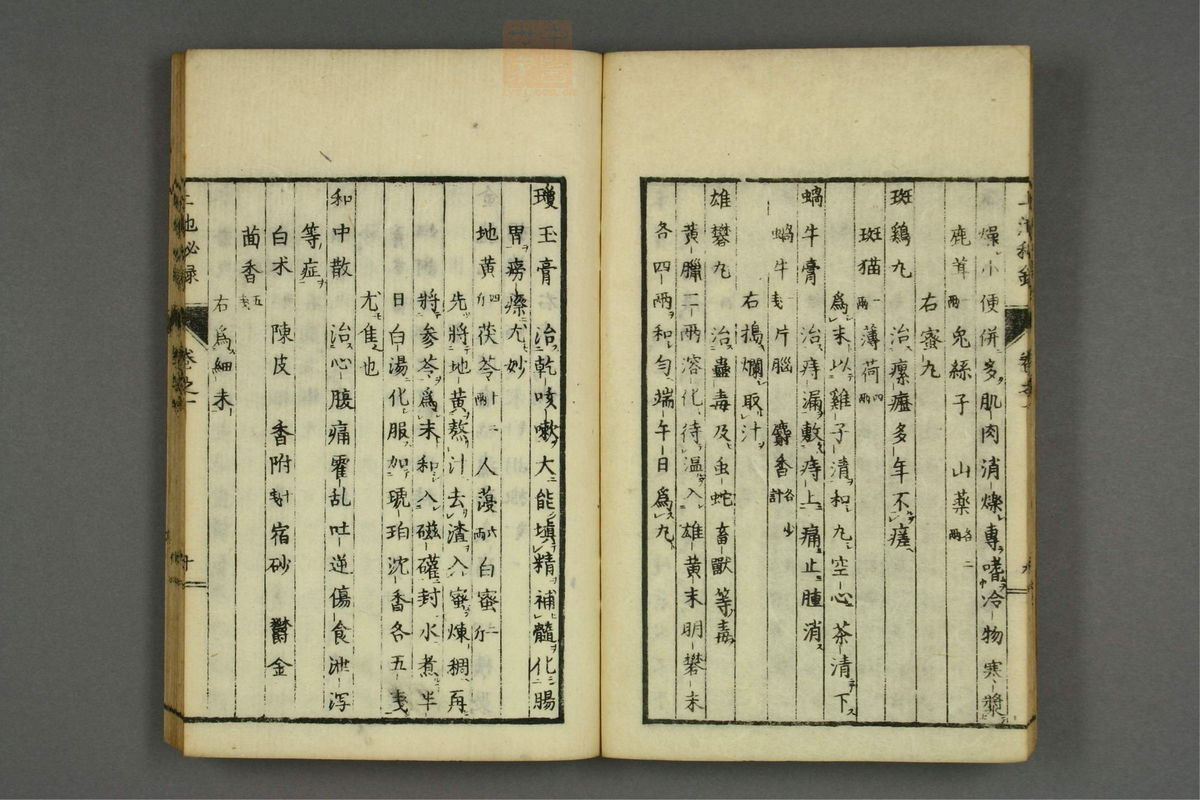 燥小便併多肌肉消爍專嗜冷物寒漿
鹿茸兩 兔絲子 山薬各二兩
右蜜丸
斑鷄丸 治瘰癧多年不瘥
斑猫一兩 薄荷四兩
為末以雞子清和丸空心茶清下
蝸牛膏 治痔漏敷痔上痛止腫消
蝸牛一戔 片腦 麝香各少計
右搗爛取汁
雄礬丸 治蟲毒及虫蛇畜獸等毒
黃臘二兩溶化待温入雄黃末明礬末
各四兩和勻端午日為丸
瓊玉膏 治乾咳嗽大能塡精補髓化腸
胃癆瘵尤妙
地黃四斤 茯苓十二兩 人蓡六兩 白蜜一斤
先將地黃熬汁去渣入蜜煉稠再
將參苓為末和入磁礶封水煮半
日白湯化服加琥珀沈香各五戔
尤隹也
和中散 治心腹痛霍乱吐逆傷食泄瀉
等症
白术 陳皮 香附十戔 宿砂 鬱金
茴香五戔
右為細末
卷之一